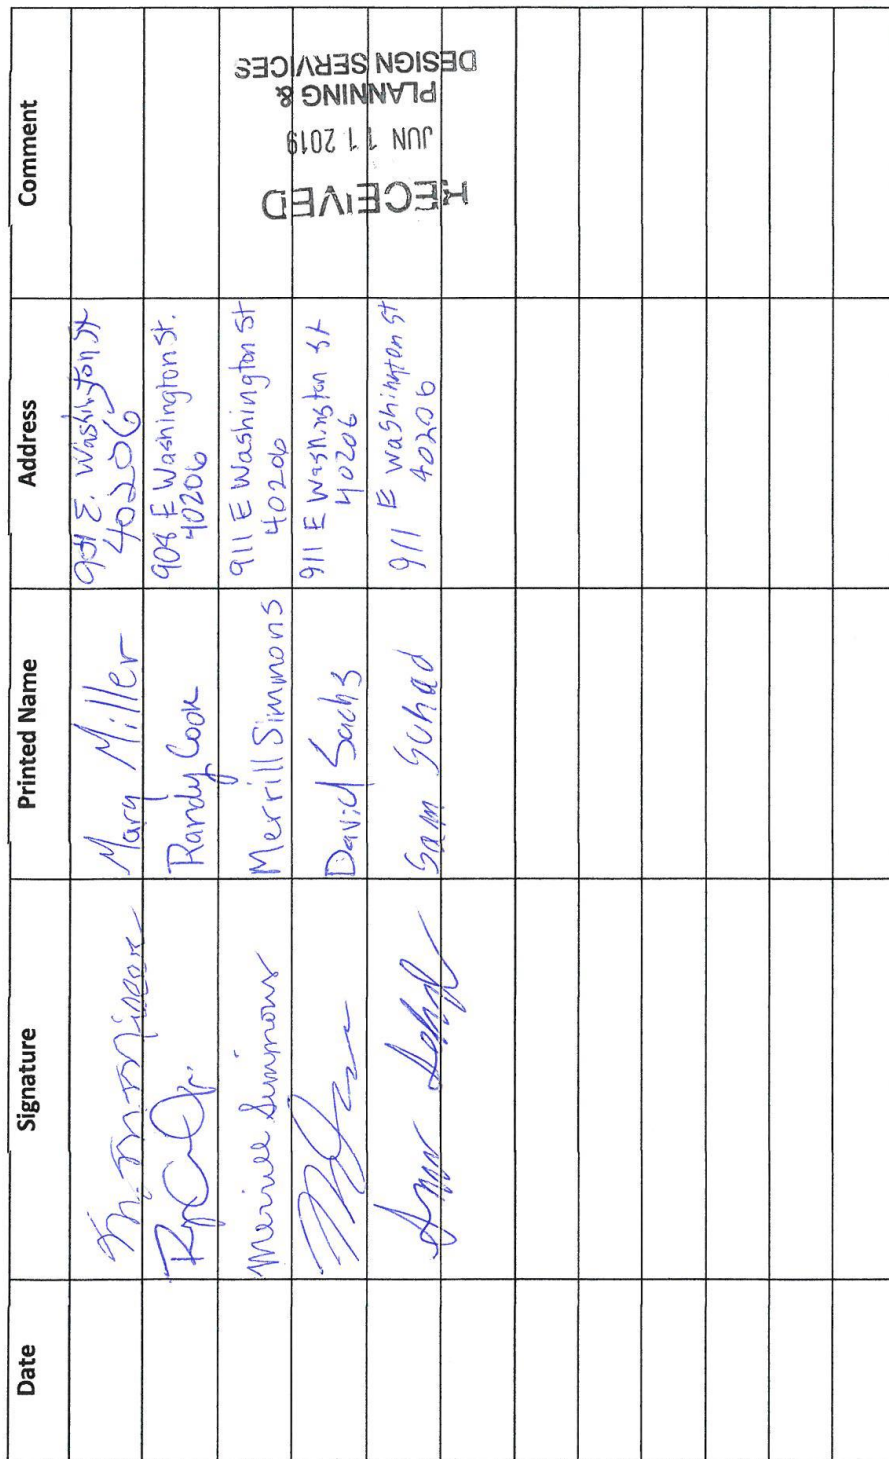 Date Signature Printed Name Address Comment
Mary Miller E. Washington St
40206
Randy Cook 908 E Washington St.
40206
Merrill Simmons Merrill Simmons 911 E Washington St
40206
David Sachs 911 E Washington St
40206
Sam 911 E Washington St
40206
RECEIVED
JUN 11 2019
PLANNING &
DESIGN SERVICES